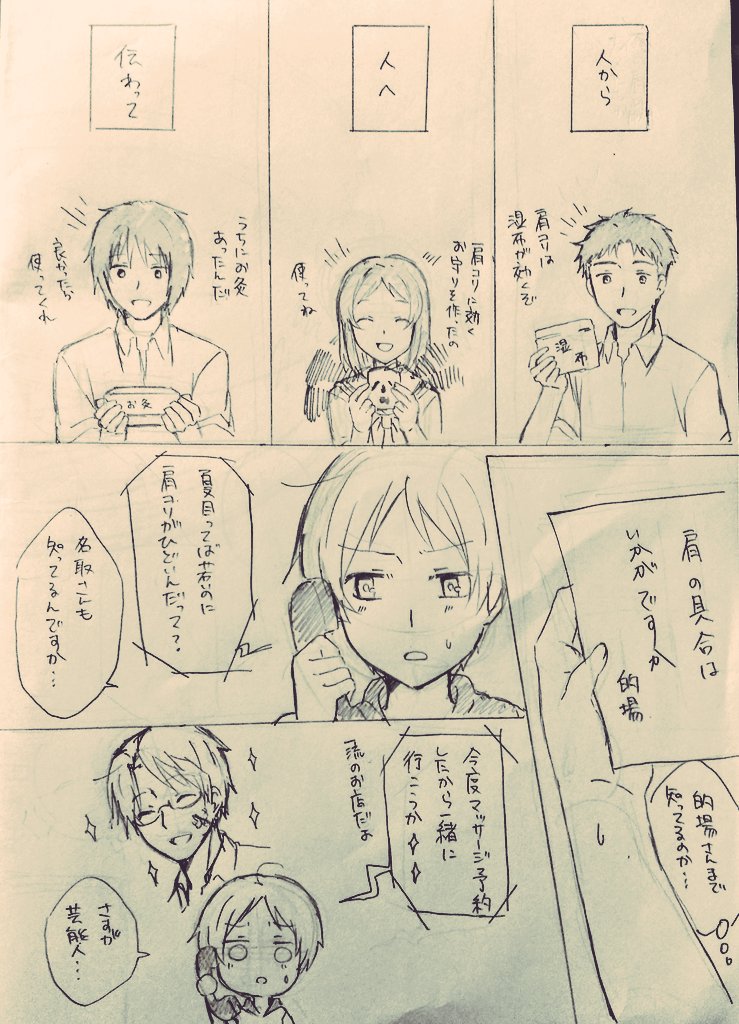 人から
肩コリは
湿布が効くぞ
湿布
人へ
肩コリに効く
お守りを作ったの
使ってね
伝わって
うちにお灸
あったんだ
良かったら
使ってくれ
お灸
肩の具合は
いかがですか
的場
的場さんまで
知ってるのか…
夏目ってば若いのに
肩コリがひどいんだって?
名取さんも
知ってるんですか…
今度マッサージ予約
したから一緒に
行こうか
一流のお店だよ
さすが
芸能人…